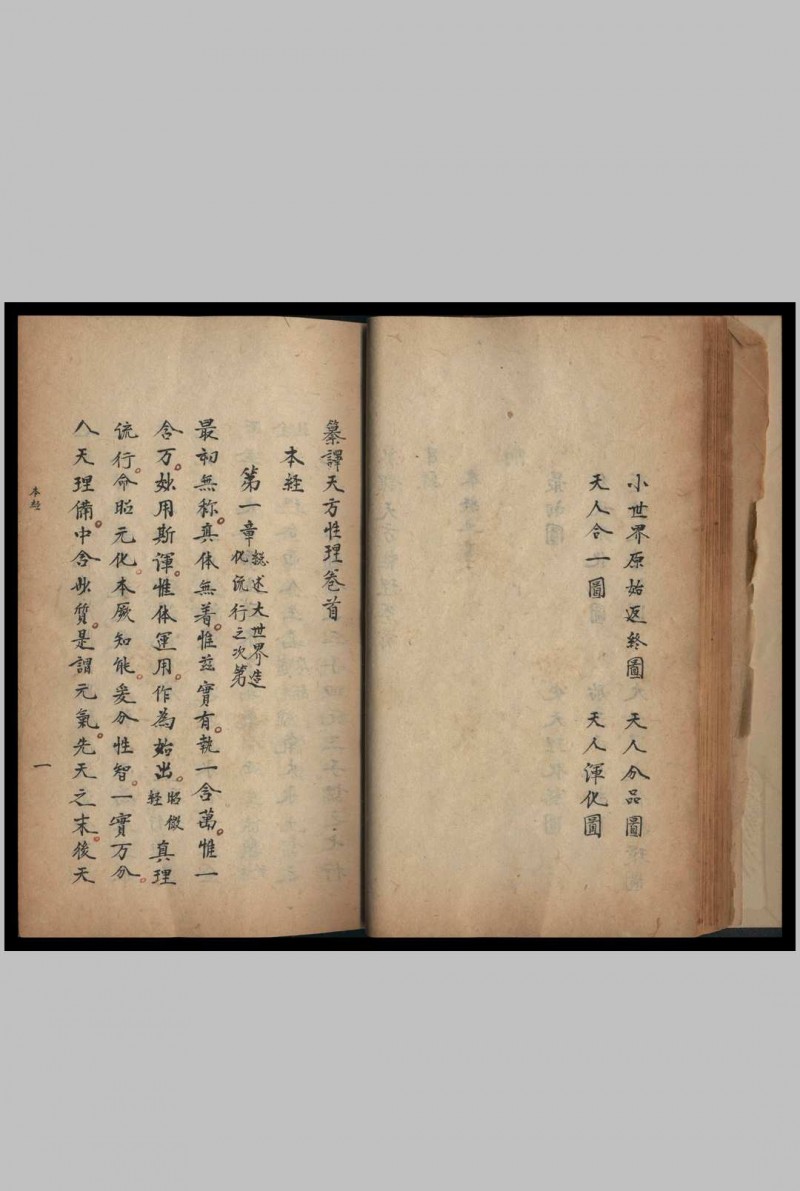 小世界原始返终圖　天人分品圖
天人合一圖　天人渾化圖
纂譯天方性理卷首
本経
第一章
摠述大世界造
化流行之次第
最初無称真体無着惟兹實有執一含萬惟一
含万妙用斯渾惟体運用作為始出
昭儆
轻
真理
流行命昭元化本厥知能爰分性智一實万分
人天理備中含妙質是謂元氣先天之末後天
本経
一